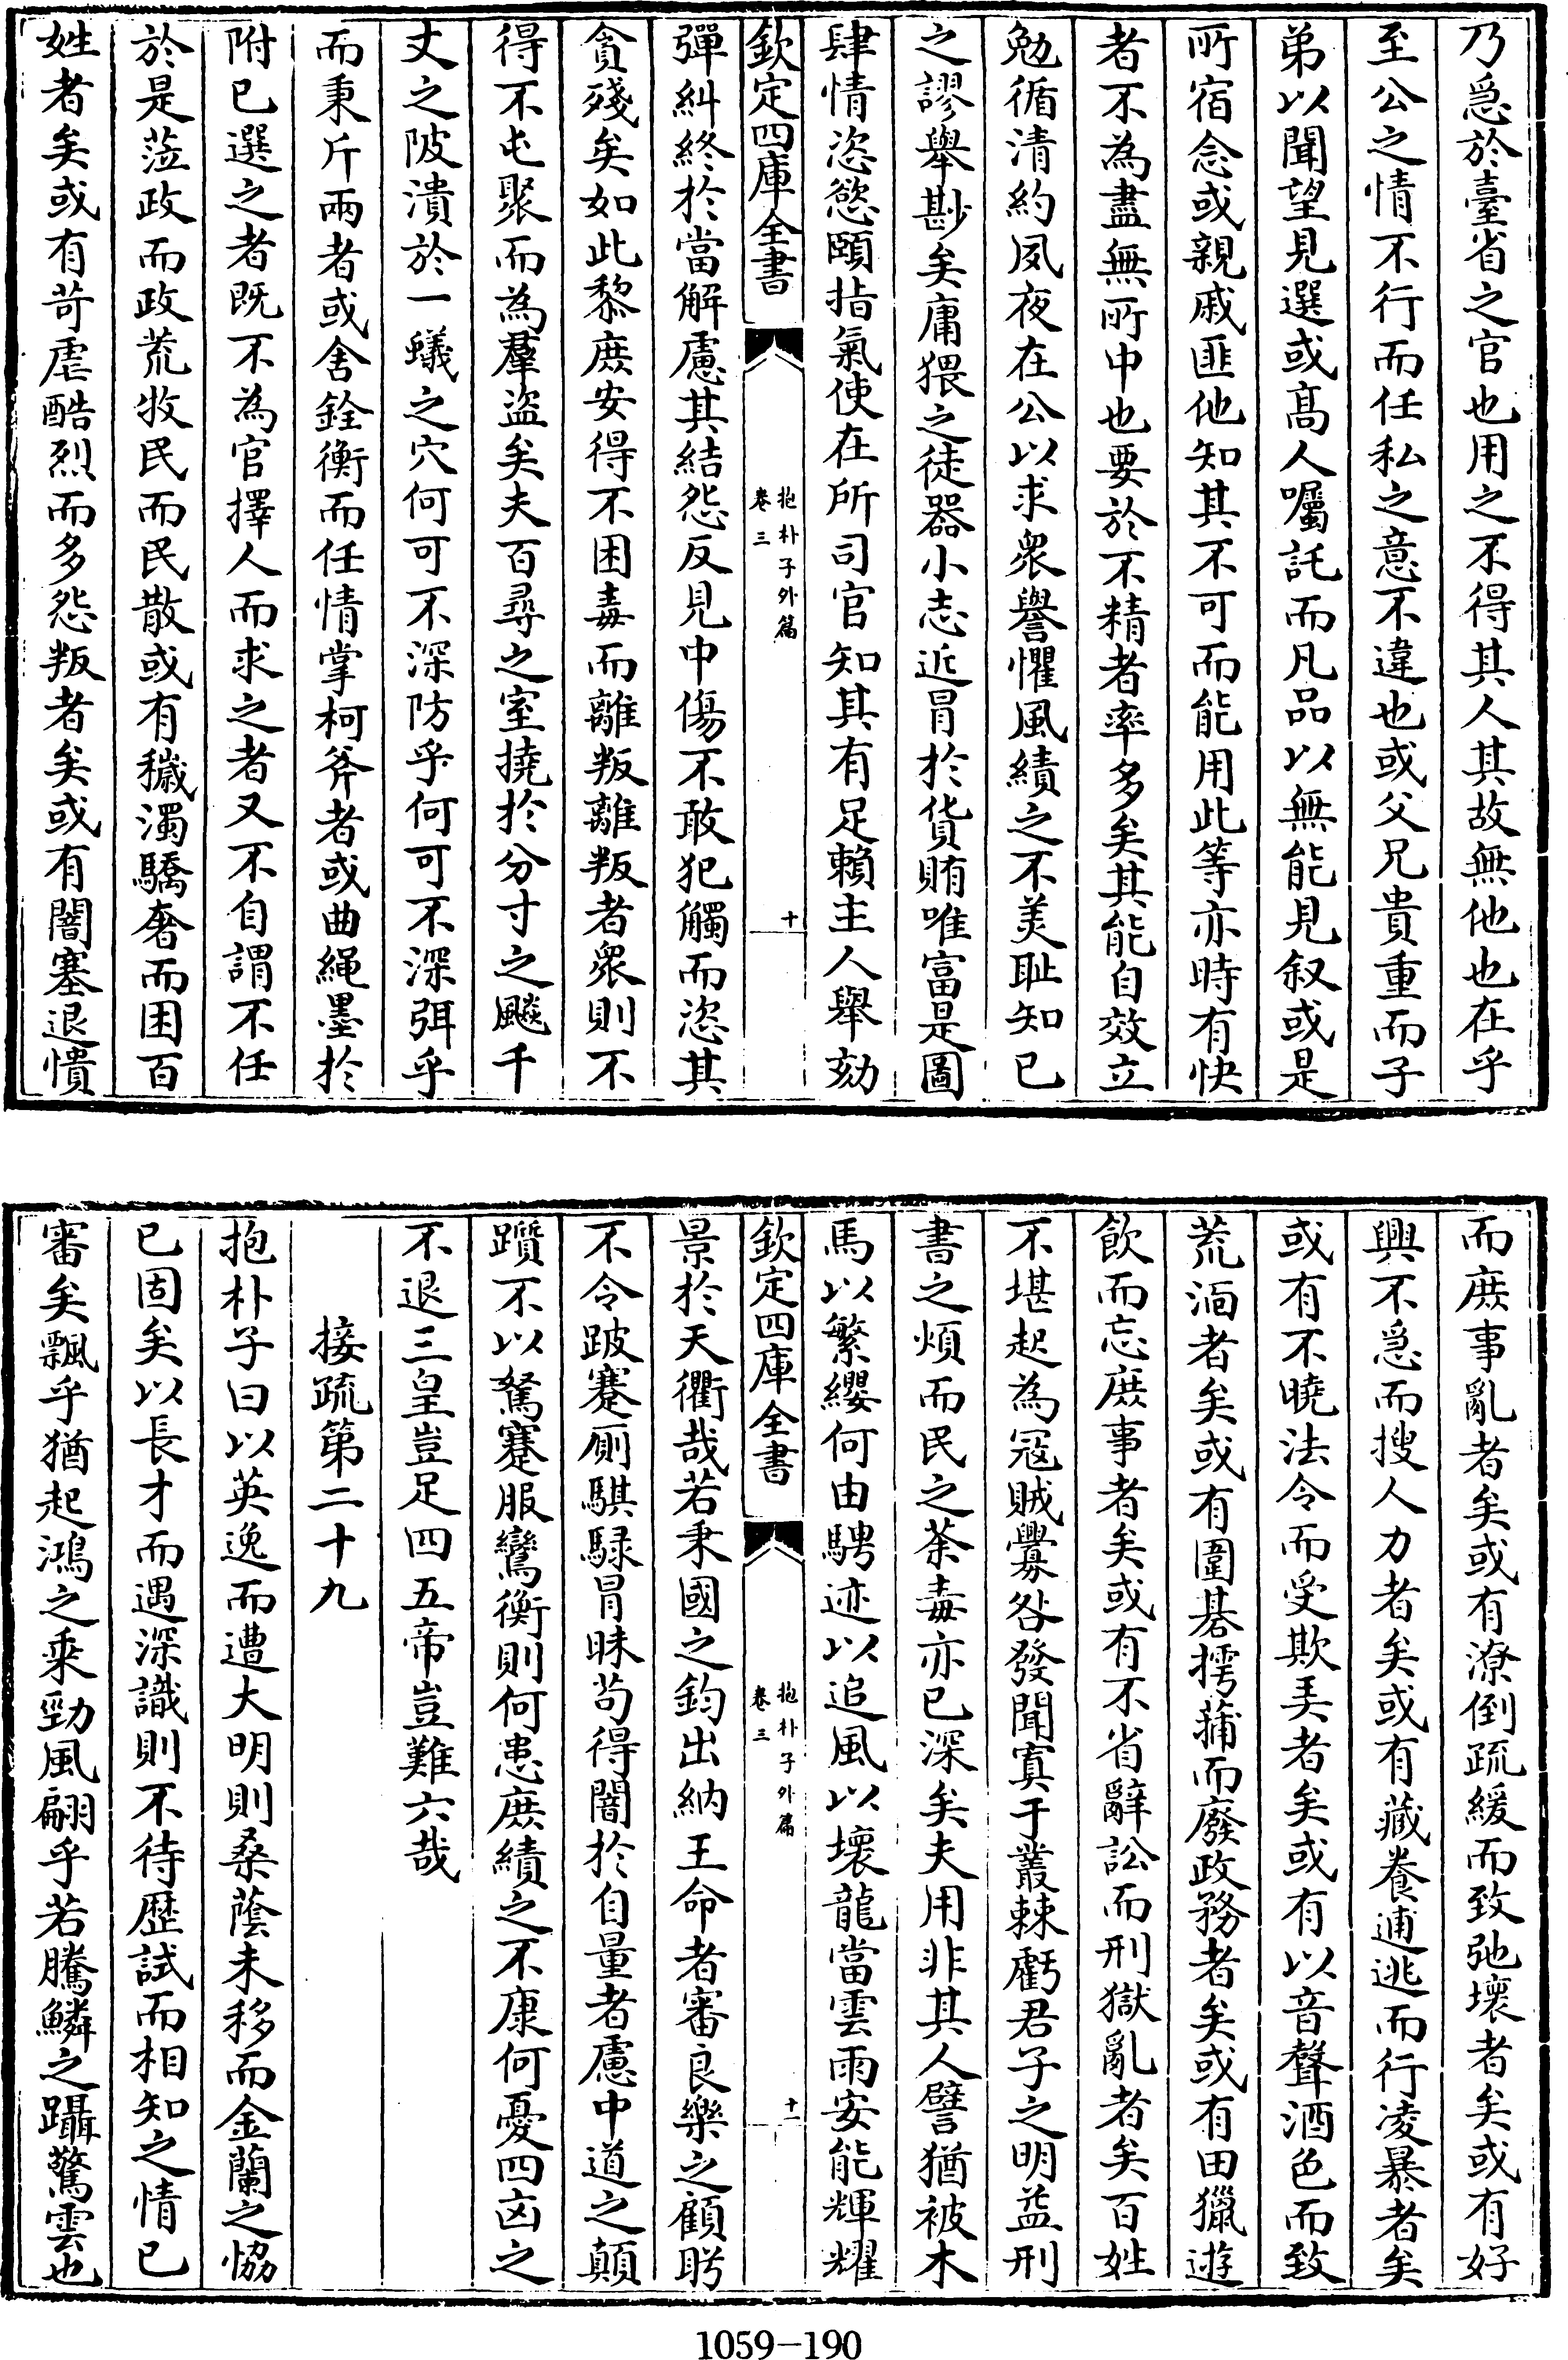 乃急於臺省之官也用之不得其人其故無他也在乎
至公之情不行而任私之意不違也或父兄貴重而子
弟以聞望見選或髙人囑託而凡品以無能見叙或是
所宿念或親戚匪他知其不可而能用此等亦時有快
者不為盡無所中也要於不精者率多矣其能自效立
勉循清約夙夜在公以求衆譽懼風績之不美耻知已
之謬舉尠矣庸猥之徒器小志近冒於貨賄唯富是圖
肆情恣慾頤指氣使在所司官知其有足賴主人舉劾
欽定四庫全書
抱朴子外篇
卷三
十
彈糾終於當解慮其結怨反見中傷不敢犯觸而恣其
貪殘矣如此黎庶安得不困毒而離叛離叛者衆則不
得不屯聚而為羣盜矣夫百尋之室撓於分寸之飈千
丈之陂潰於一蟻之穴何可不深防乎何可不深弭乎
而秉斤兩者或舍銓衡而任情掌柯斧者或曲繩墨於
附已選之者既不為官擇人而求之者又不自謂不任
於是蒞政而政荒牧民而民散或有穢濁驕奢而困百
姓者矣或有苛虐酷烈而多怨叛者矣或有闇塞退憒
而庶事亂者矣或有潦倒疏緩而致弛壞者矣或有好
興不急而搜人力者矣或有藏養逋逃而行凌暴者矣
或有不曉法令而受欺弄者矣或有以音聲酒色而致
荒湎者矣或有圍碁摴蒱而廢政務者矣或有田獵遊
飲而忘庶事者矣或有不省辭訟而刑獄亂者矣百姓
不堪起為冦賊釁咎發聞寘于叢棘虧君子之明益刑
書之煩而民之荼毒亦已深矣夫用非其人譬猶被木
馬以繁纓何由騁迹以追風以壞龍當雲雨安能輝耀
欽定四庫全書
抱朴子外篇
卷三
十一
景於天衢哉若秉國之鈞出納王命者審良樂之顧眄
不令跛蹇厠騏騄冒昧茍得闇於自量者慮中道之顛
躓不以駑蹇服鸞衡則何患庶績之不康何憂四凶之
不退三皇豈足四五帝豈難六哉
接疏第二十九
抱朴子曰以英逸而遭大明則桑蔭未移而金蘭之恊
已固矣以長才而遇深識則不待歴試而相知之情已
審矣飄乎猶起鴻之乘勁風翩乎若騰鱗之躡驚雲也
1059-190